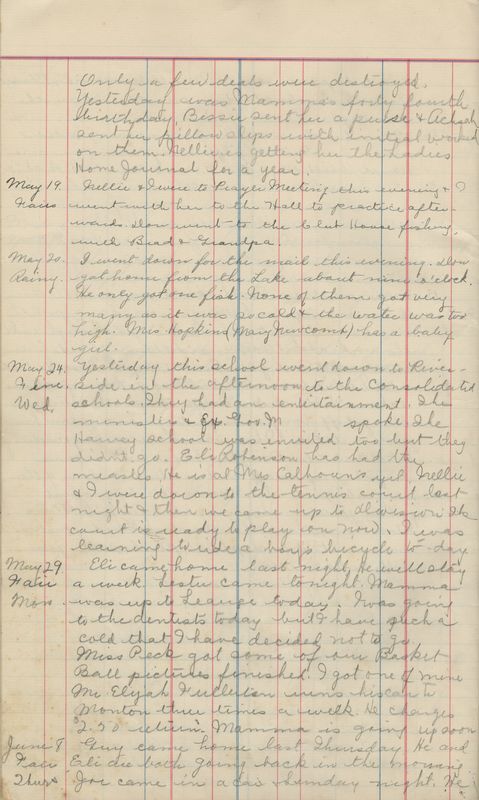 Only a few deals were destroyed.
Yesterday was Mamma's forty fourth
birthday. Bessie sent her a purse & Achsah
sent her pillow slips with initial worked
on them. Nellie is getting her the Ladies
Home Journal for a year.
May 19. Nellie & I were to Prayer Meeting this evening & I
Fair went with her to the Hall to practice after-
wards. Don went to the Club House fishing
with Brad & Grandpa.
May 20. I went down for the mail this evening. Don
Rainy. got home from the Lake about nine o'clock.
He only got one fish. None of them got very
many as it was so cold & the water was too
high. Mrs. Hopkins (Mary Newcomb) has a baby
girl.
May 24. Yesterday this school went down to River-
Fine. side in the afternoon to the Consolidated
Wed. schools. They had an entertainment. The
minister & Ex. Gov. M spoke. The
Harvey school was invited too but they
didn't go. Eli Robinson has had the
measles. He is at Mrs Calhouns yet. Nellie
& I were down to the tennis court last
night & then we came up to division. The
court is ready to play on now. I was
learning to ride a boy's bicycle to-day
May 29 Eli came home last night. He will stay
Fair a week. came tonight. Mamma
Mon. was up to today. I was going
to the dentists today but I have such a
cold that I have decided not to go.
Miss Peck got some of our Basket
Ball pictures finished. I got one of mine
Mr. Elijah Fullerton runs his car to
Moncton three times a week. He charges
$2.50 return. Mamma is going up soon
June 8 Guy came home last Thursday. He and
Fair Eli are both going back in the morning
Thurs Joe came in a car Sunday night. He